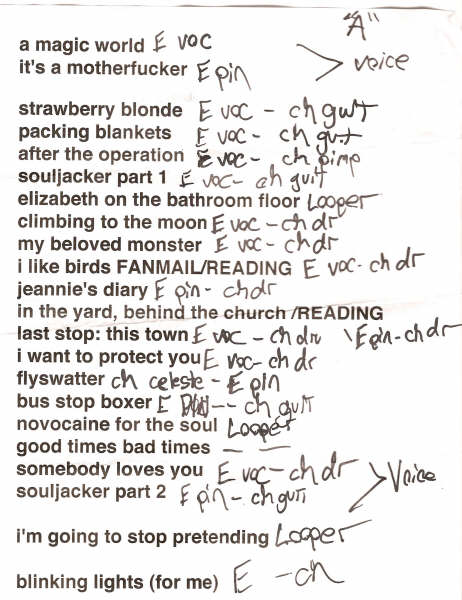 "A"
a magic world E voc
it's a motherfucker E pin > voice
strawberry blonde E voc - ch guit
packing blankets E voc - ch guit
after the operation E voc - ch pimp
souljacker part 1 E voc - ch guit
elizabeth on the bathroom floor Looper
climbing to the moon E voc - ch dr
my beloved monster E voc - ch dr
i like birds FANMAIL/READING E voc - ch dr
jeannie's diary E pin - ch dr
in the yard, behind the church /READING
last stop: this town E voc - ch dru \ E pin - ch dr
i want to protect you E voc - ch dr
flyswatter ch celeste - E pin
bus stop boxer E -- ch guit
novocaine for the soul Looper
good times bad times — —
somebody loves you E voc - ch dr
souljacker part 2 E pin - ch guit > Voice
i'm going to stop pretending Looper
blinking lights (for me) E - ch